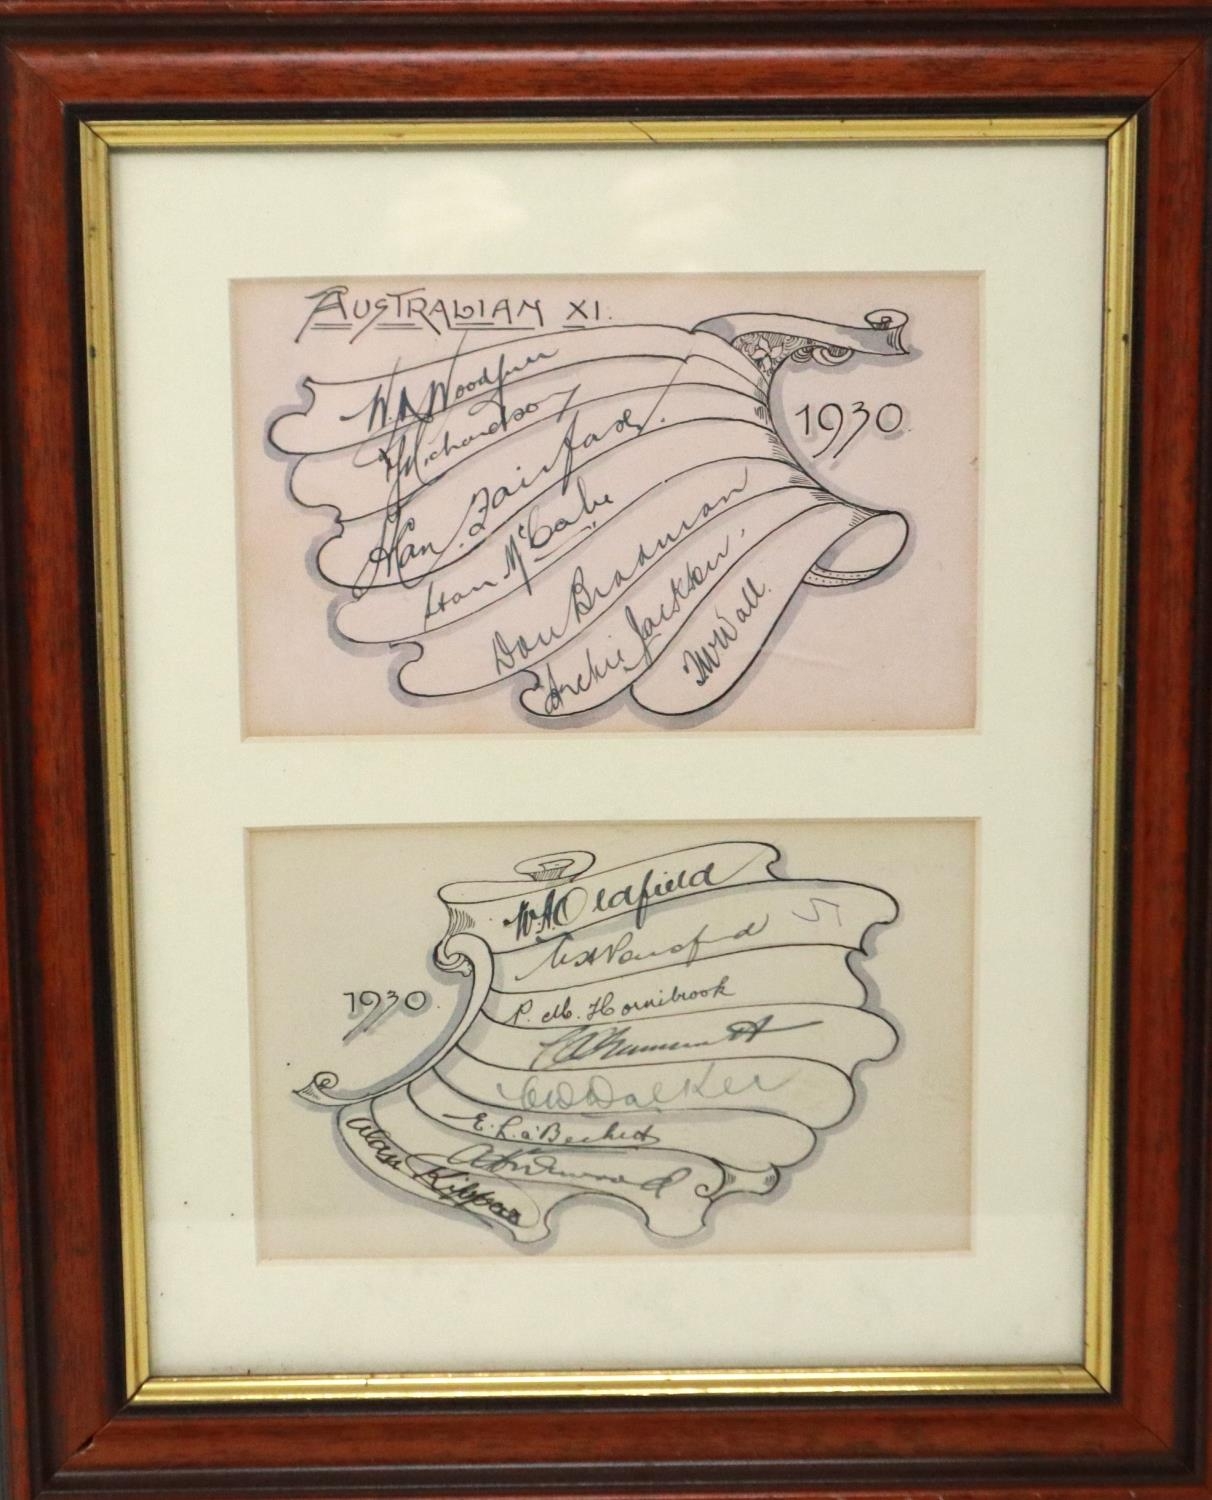 AUSTRALIAN XI.
W.M. Woodfull
V Richardson
1930.
Alan. Fairfax.
Stan McCabe
Don Bradman
Archie Jackson.
TW Wall.
W.A. Oldfield
W H Ponsford
1930.
P. M. Hornibrook
C W Walker
E. L. a'Beckett
Alan Kippax